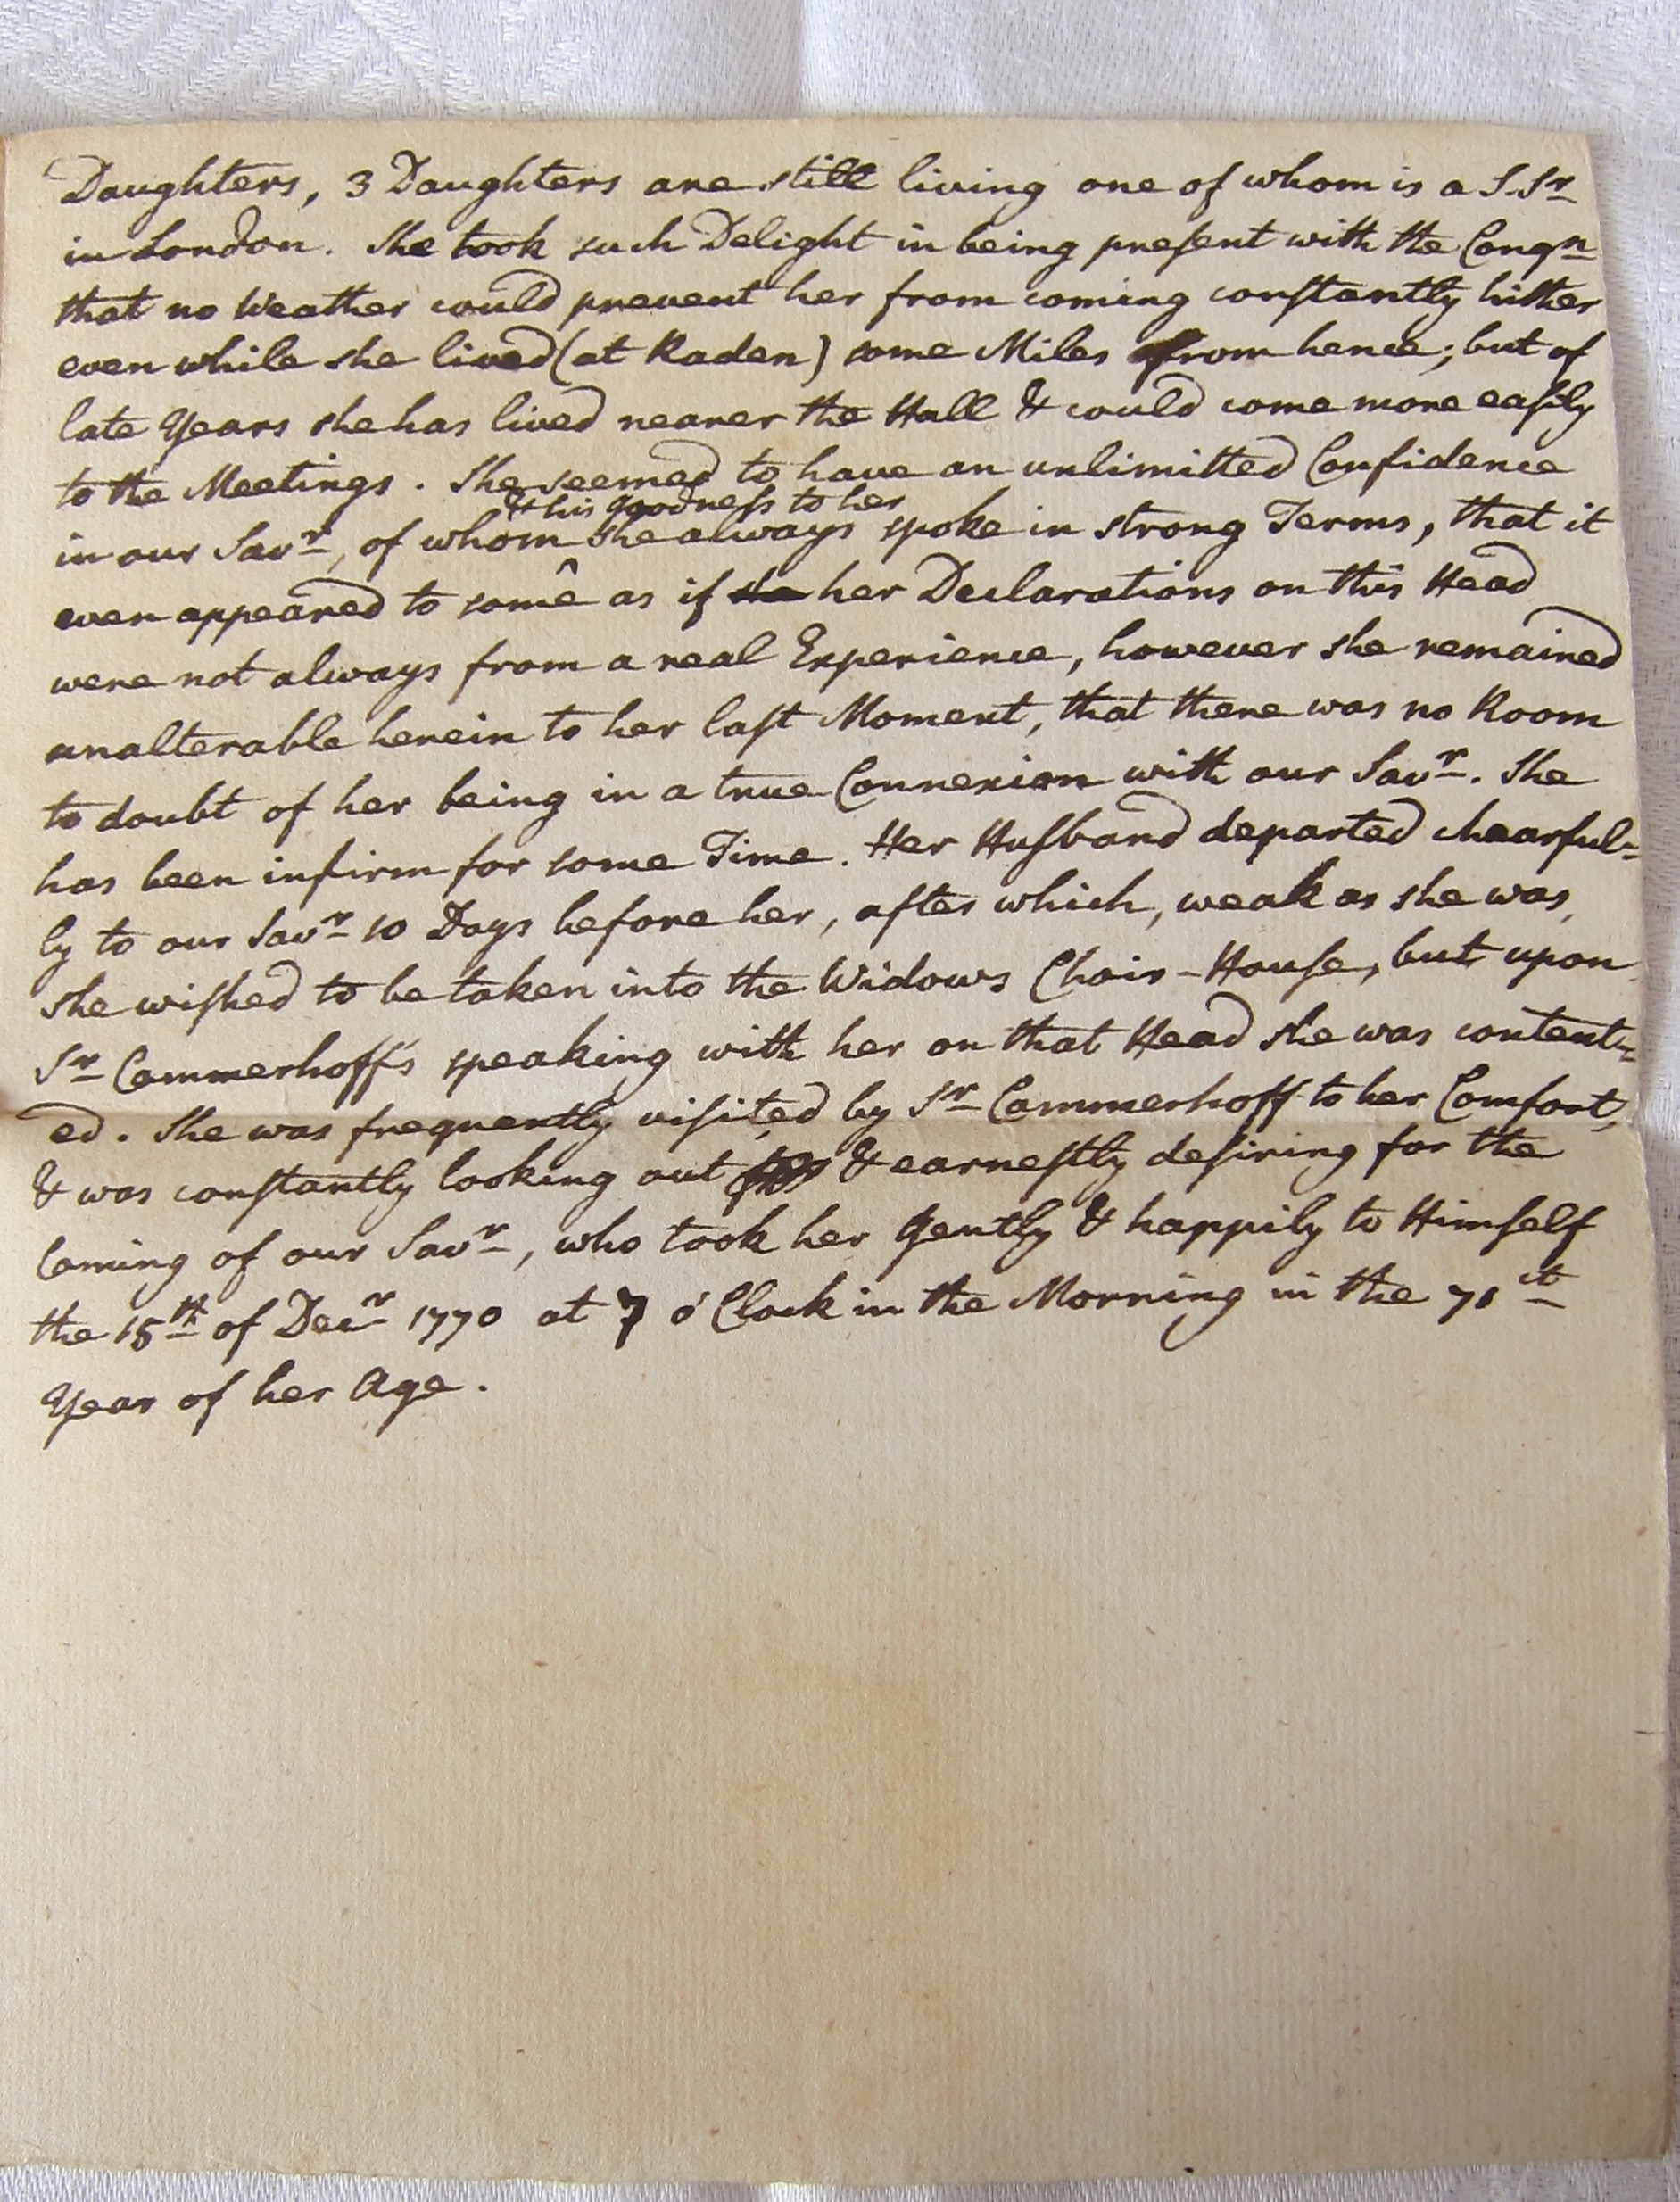 Daughters, 3 Daughters are still living one of whom is a S. Sr
in London. She took such Delight in being preſent with the Congn
that no Weather could prevent her from coming conſtantly hither
even while she lived (at Raden) some Miles from hence; but of
late Years she has lived nearer the Hall & could come more eaſily
to the Meetings. She seemed to have an unlimitted Confidence
& his goodneſs to her
in our Savr, of whom she always spoke in strong Terms, that it
even appeared to some as if her Declarations on this Head
were not always from a real Experience, however she remained
unalterable herein to her laſt Moment, that there was no Room
to doubt of her being in a true Connexion with our Savr. She
has been infirm for some Time. Her Huſband departed chearful=
ly to our Savr 10 Days before her, after which, weak as she was,
she wiſhed to be taken into the Widows Choir-Houſe, but upon
Sr Cammerhoff's speaking with her on that Head she was content=
ed. She was frequently viſited by Sr Cammerhoff to her Comfort,
& was conſtantly looking out & earneſtly deſiring for the
Coming of our Savr, who took her gently & happily to Himſelf
the 15th of Decr 1770 at 7 o'Clock in the Morning in the 71st
Year of her Age.